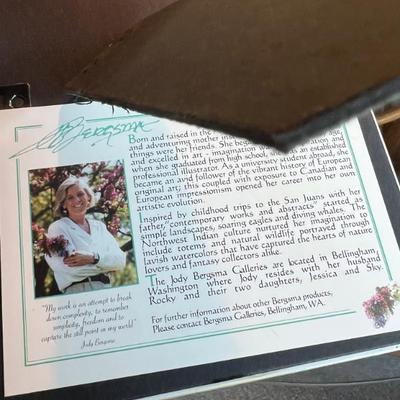 Bergsma
Born and raised in the
and adventuring mother
things were her friends. She
and excelled in art - imagination
when she graduated from high school, she was an established
professional illustrator. As a university student abroad, she
became an avid follower of the vibrant history of European
original art; this coupled with exposure to Canadian and
European impressionism opened her career into her own
artistic evolution.
Inspired by childhood trips to the San Juans with her
father, "contemporary works and abstracts" started as
simple landscapes, soaring eagles and diving whales. The
Northwest Indian culture nurtured her imagination to
include totems and natural wildlife portrayed through
lavish watercolors that have captured the hearts of nature
lovers and fantasy collectors alike.
The Jody Bergsma Galleries are located in Bellingham,
Washington where Jody resides with her husband
Rocky and their two daughters, Jessica and Sky.
For further information about other Bergsma products,
Please contact Bergsma Galleries, Bellingham, WA.
"My work is an attempt to break
down complexity, to remember
simplicity, freedom and to
capture the still point in my world"
Jody Bergsma